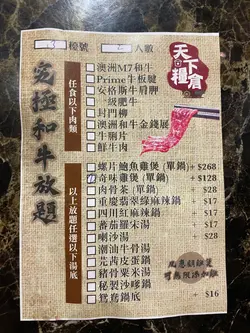 檯號 人數
天下糧倉
究極和牛放題
任食以下肉類
澳洲M7和牛
Prime牛板腱
安格斯牛肩胛
一級肥牛
封門柳
澳洲和牛金錢展
牛脷片
鮮牛肉
以上放題任選以下湯底
螺片鮑魚雞煲 (單鍋) +$268
奇味雞煲 (單鍋) +$128
肉骨茶 (單鍋) +$28
重慶翡翠綠麻辣鍋 +$17
四川紅麻辣鍋 +$17
蕃茄羅宋湯 +$17
喇沙湯 +$28
潮油牛骨湯
芫茜皮蛋鍋
豬骨粟米湯
秘製沙嗲鍋
鴛鴦鍋底 +$16